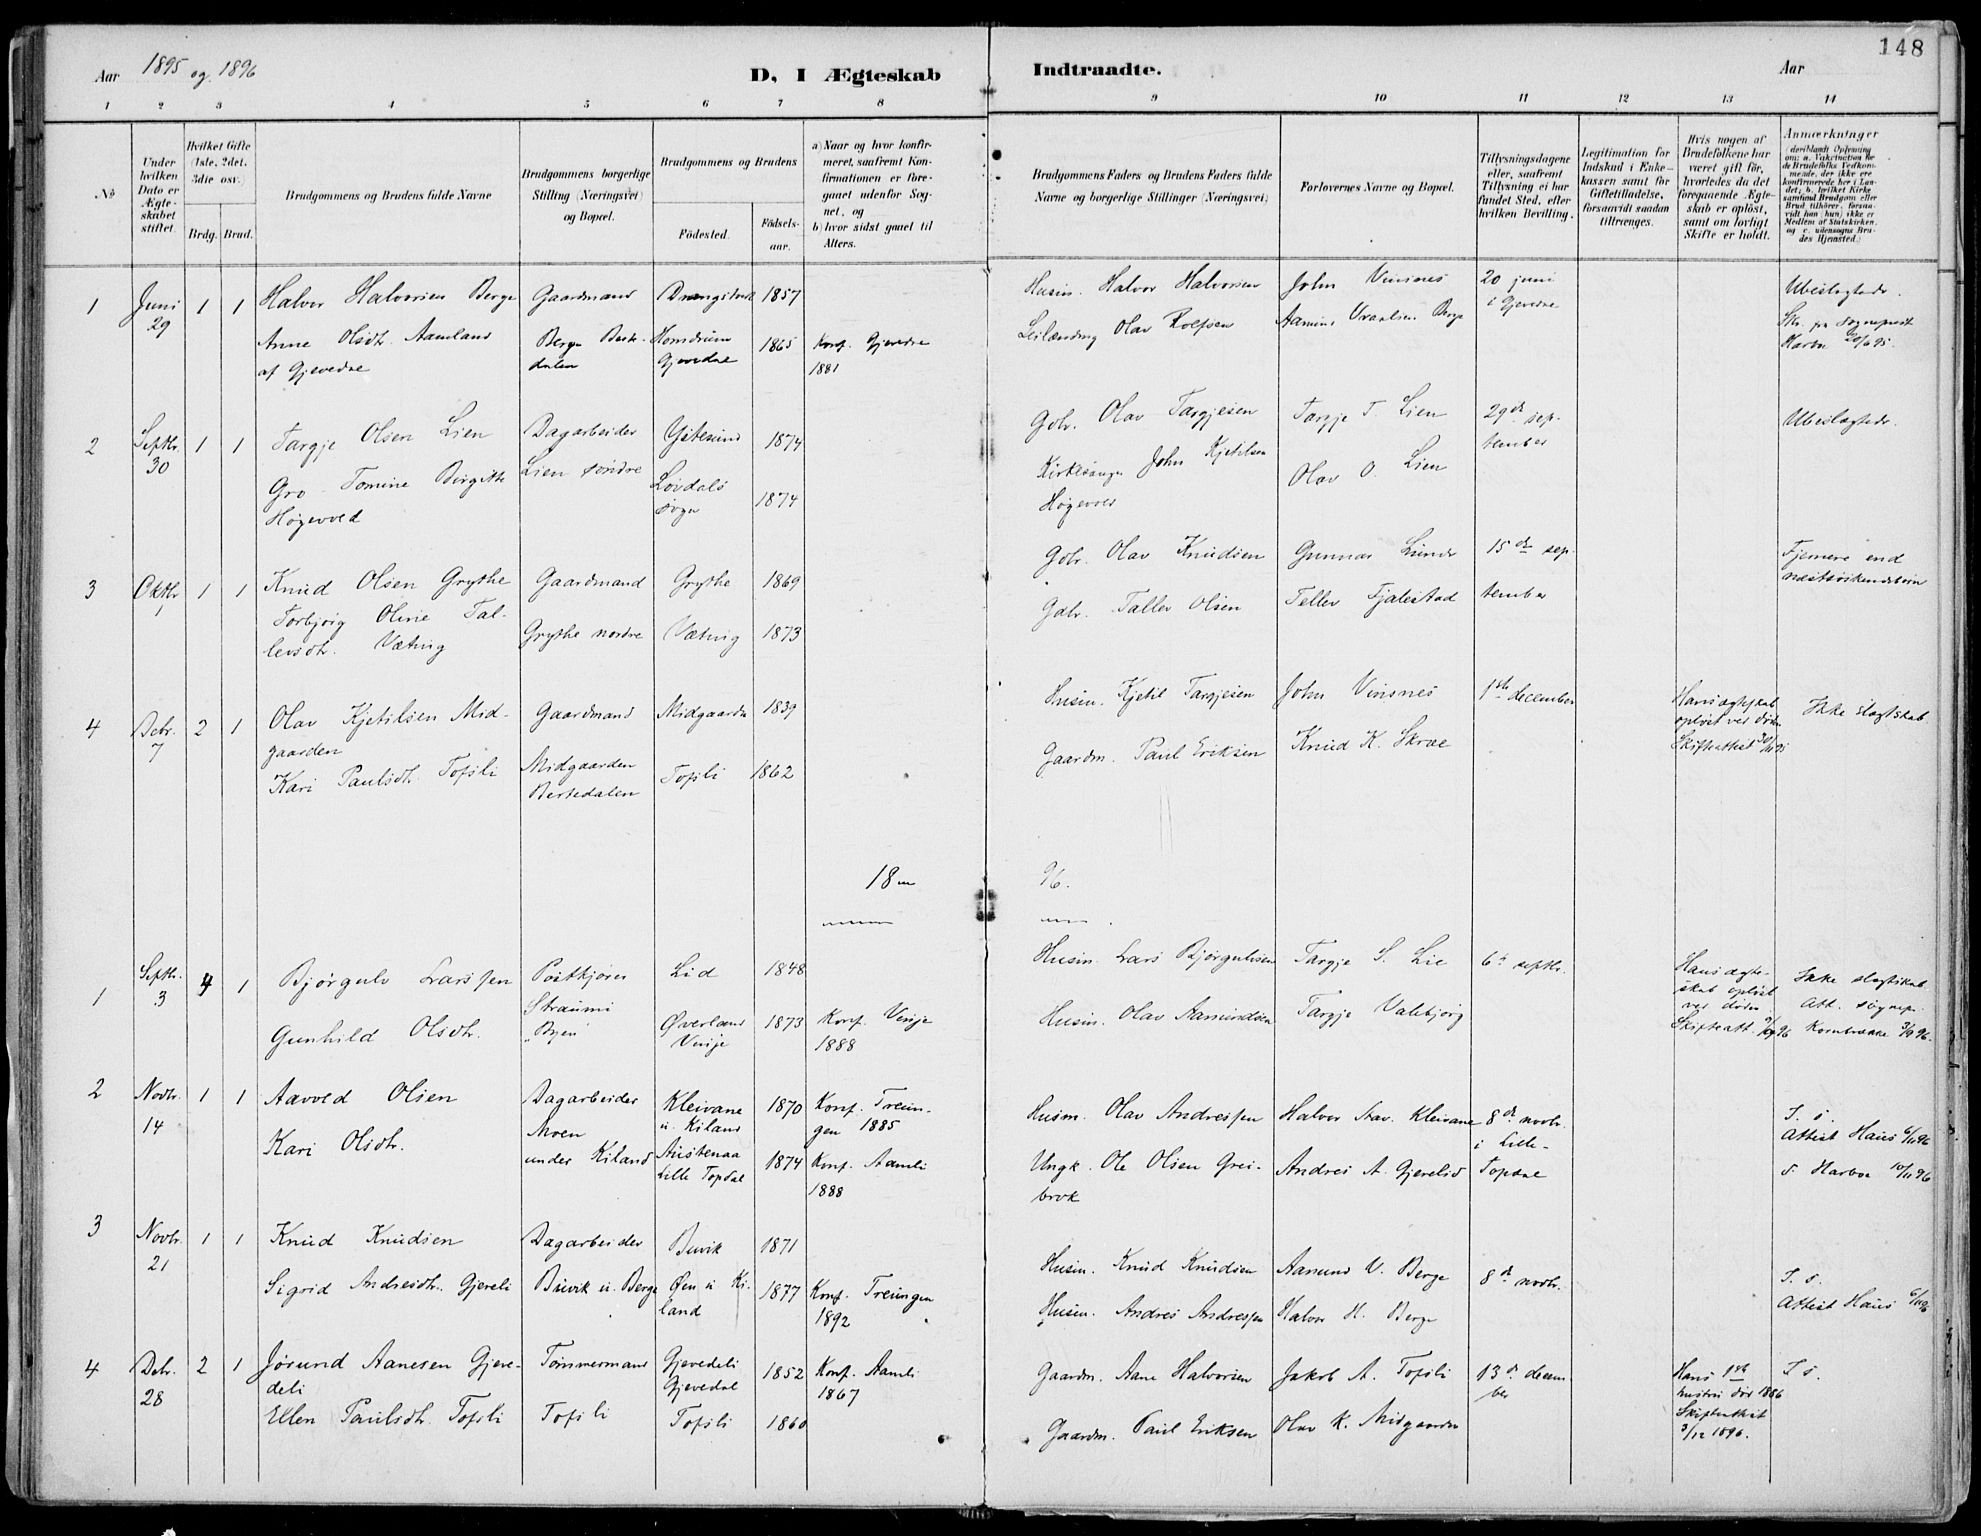 148
Aar 1895 og 1896 D, I Ægteskab Indtraadte. Aar
1 2 3 4 5 6 7 8 9 10 11 12 13 14
№
Under hvilken Dato er Ægteskabet stiftet.
Hvilket Gifte (1ste, 2det, 3die osv.)
Brdg. Brud.
Brudgommens og Brudens fulde Navne
Brudgommens borgerlige Stilling (Næringsvei) og Bopæl.
Brudgommens og Brudens
Fødested. Fødselsaar.
a) Naar og hvor konfirmeret, saafremt Konfirmationen er foregaaet udenfor Sognet, og
b) hvor sidst gaaet til Alters.
Brudgommens Faders og Brudens Faders fulde Navne og borgerlige Stillinger (Næringsvei)
Forlovernes Navne og Bopæl.
Tillysningsdagene eller, saafremt Tillysning ei har fundet Sted, efter hvilken Bevilling.
Legitimation for Indskud i Enkekassen samt for Giftetilladelse, forsaavidt saadan tiltrænges.
Hvis nogen af Brudefolkene har været gift før, hvorledes da det foregaaende Ægteskab er opløst, samt om lovligt Skifte er holdt.
Anmærkninger
1 Juni 29 1 1 Halvor Halvorsen Berge Gaardmand 1857 Husm. Halvor Halvorsen John Vinsnes 20 juni i Gjevedne Ubeslægtede.
Anne Olsdtr. Aamland af Gjevedne Berge 1865 Konf. Gjevedne 1881 Leilænding Olav Rolfsen Aamund Vraalsen Berge Skr. fra Sognepræst Harboe 20/6 95.
2 Septbr. 30 1 1 Targje Olsen Lien Dagarbeider 1874 Gbr. Olav Targjesen Targje T. Lien 29de september Ubeslægtede.
Gro Tomine Birgitte Høgevold Lien søndre Løvdals sogn 1874 Kirkesanger John Kjetilsen Høgevold Olav O Lien
3 Oktbr 1 1 1 Knud Olsen Grythe Gaardmand Grythe 1869 Gbr. Olav Knudsen Gunnar Lunde 15de september Fjernere end næstsøskendebørn
Torbjørg Oline Tallevsdtr. Vætvig Grythe nordre Vætvig 1873 Gbr. Tallev Olsen Tellev Fjalestad
4 Debr. 7 2 1 Olav Kjetilsen Midgaarden Gaardmand Midgaarden 1839 Husm. Kjetil Targjesen John Vinsnes 1ste december Hans ægteskab opløst ved døden Skifteattest Ikke slægtskab
Kari Paulsdtr. Tofsli Midgaarden Tofsli 1862 Gaardm. Paul Eriksen Knud K. Skree
18 96.
1 Septbr. 3 1 Bjørgulv Larssen Postkjører Lid 1848 Husm. Lars Bjørgulvsen Targje S. Lie 6te septbr. Hans ægteskab opløst ved døden Skifteatt. Ikke slægtskab
Gunhild Olsdtr. Straumi "Byen" Øverland Vinje 1873 Konf. Vinje 1888 Husm. Olav Aamundsen Targje Valebjørg Att. sognepr. Kornbrække 3/9 96.
2 Novbr. 14 1 1 Aavold Olsen Dagarbeider Kleivane u. Kiland 1870 Konf. Treungen 1885 Husm. Olav Andressen Halvor Stav. Kleivane 8de novbr. i Lille-Topdal I. s. Attest Haus 6/11 96
Kari Olsdtr. Moen under Kiland Austenaa Lille Topdal 1874 Konf. Aamli 1888 Ungk. Ole Olsen Greibrok Andres A. Gjerelid s. Harboe 10/11 96
3 Novbr. 21 1 1 Knud Knudsen Dagarbeider Buvik 1871 Husm. Knud Knudsen Aamund V. Berge 8de novbr. I. s.
Sigrid Andresdtr. Gjereli Buvik u. Berge Øen u Kiland 1877 Konf. Treungen 1892 Husm. Andres Andressen Halvor H. Berge Attest Haus 6/11 96
4 Debr. 28 2 1 Jørund Aanesen Gjevedeli Tømmermand Gjevedeli Gjevedal 1852 Konf. Aamli 1867 Gaardm. Aane Halvorsen Jakob A. Tofsli 13de december Hans 1ste hustru død 1886 Skifteattest 3/12 1896. I s.
Ellen Paulsdtr. Tofsli Tofsli Tofsli 1860 Gaardm. Paul Eriksen Olav K. Midgaarden